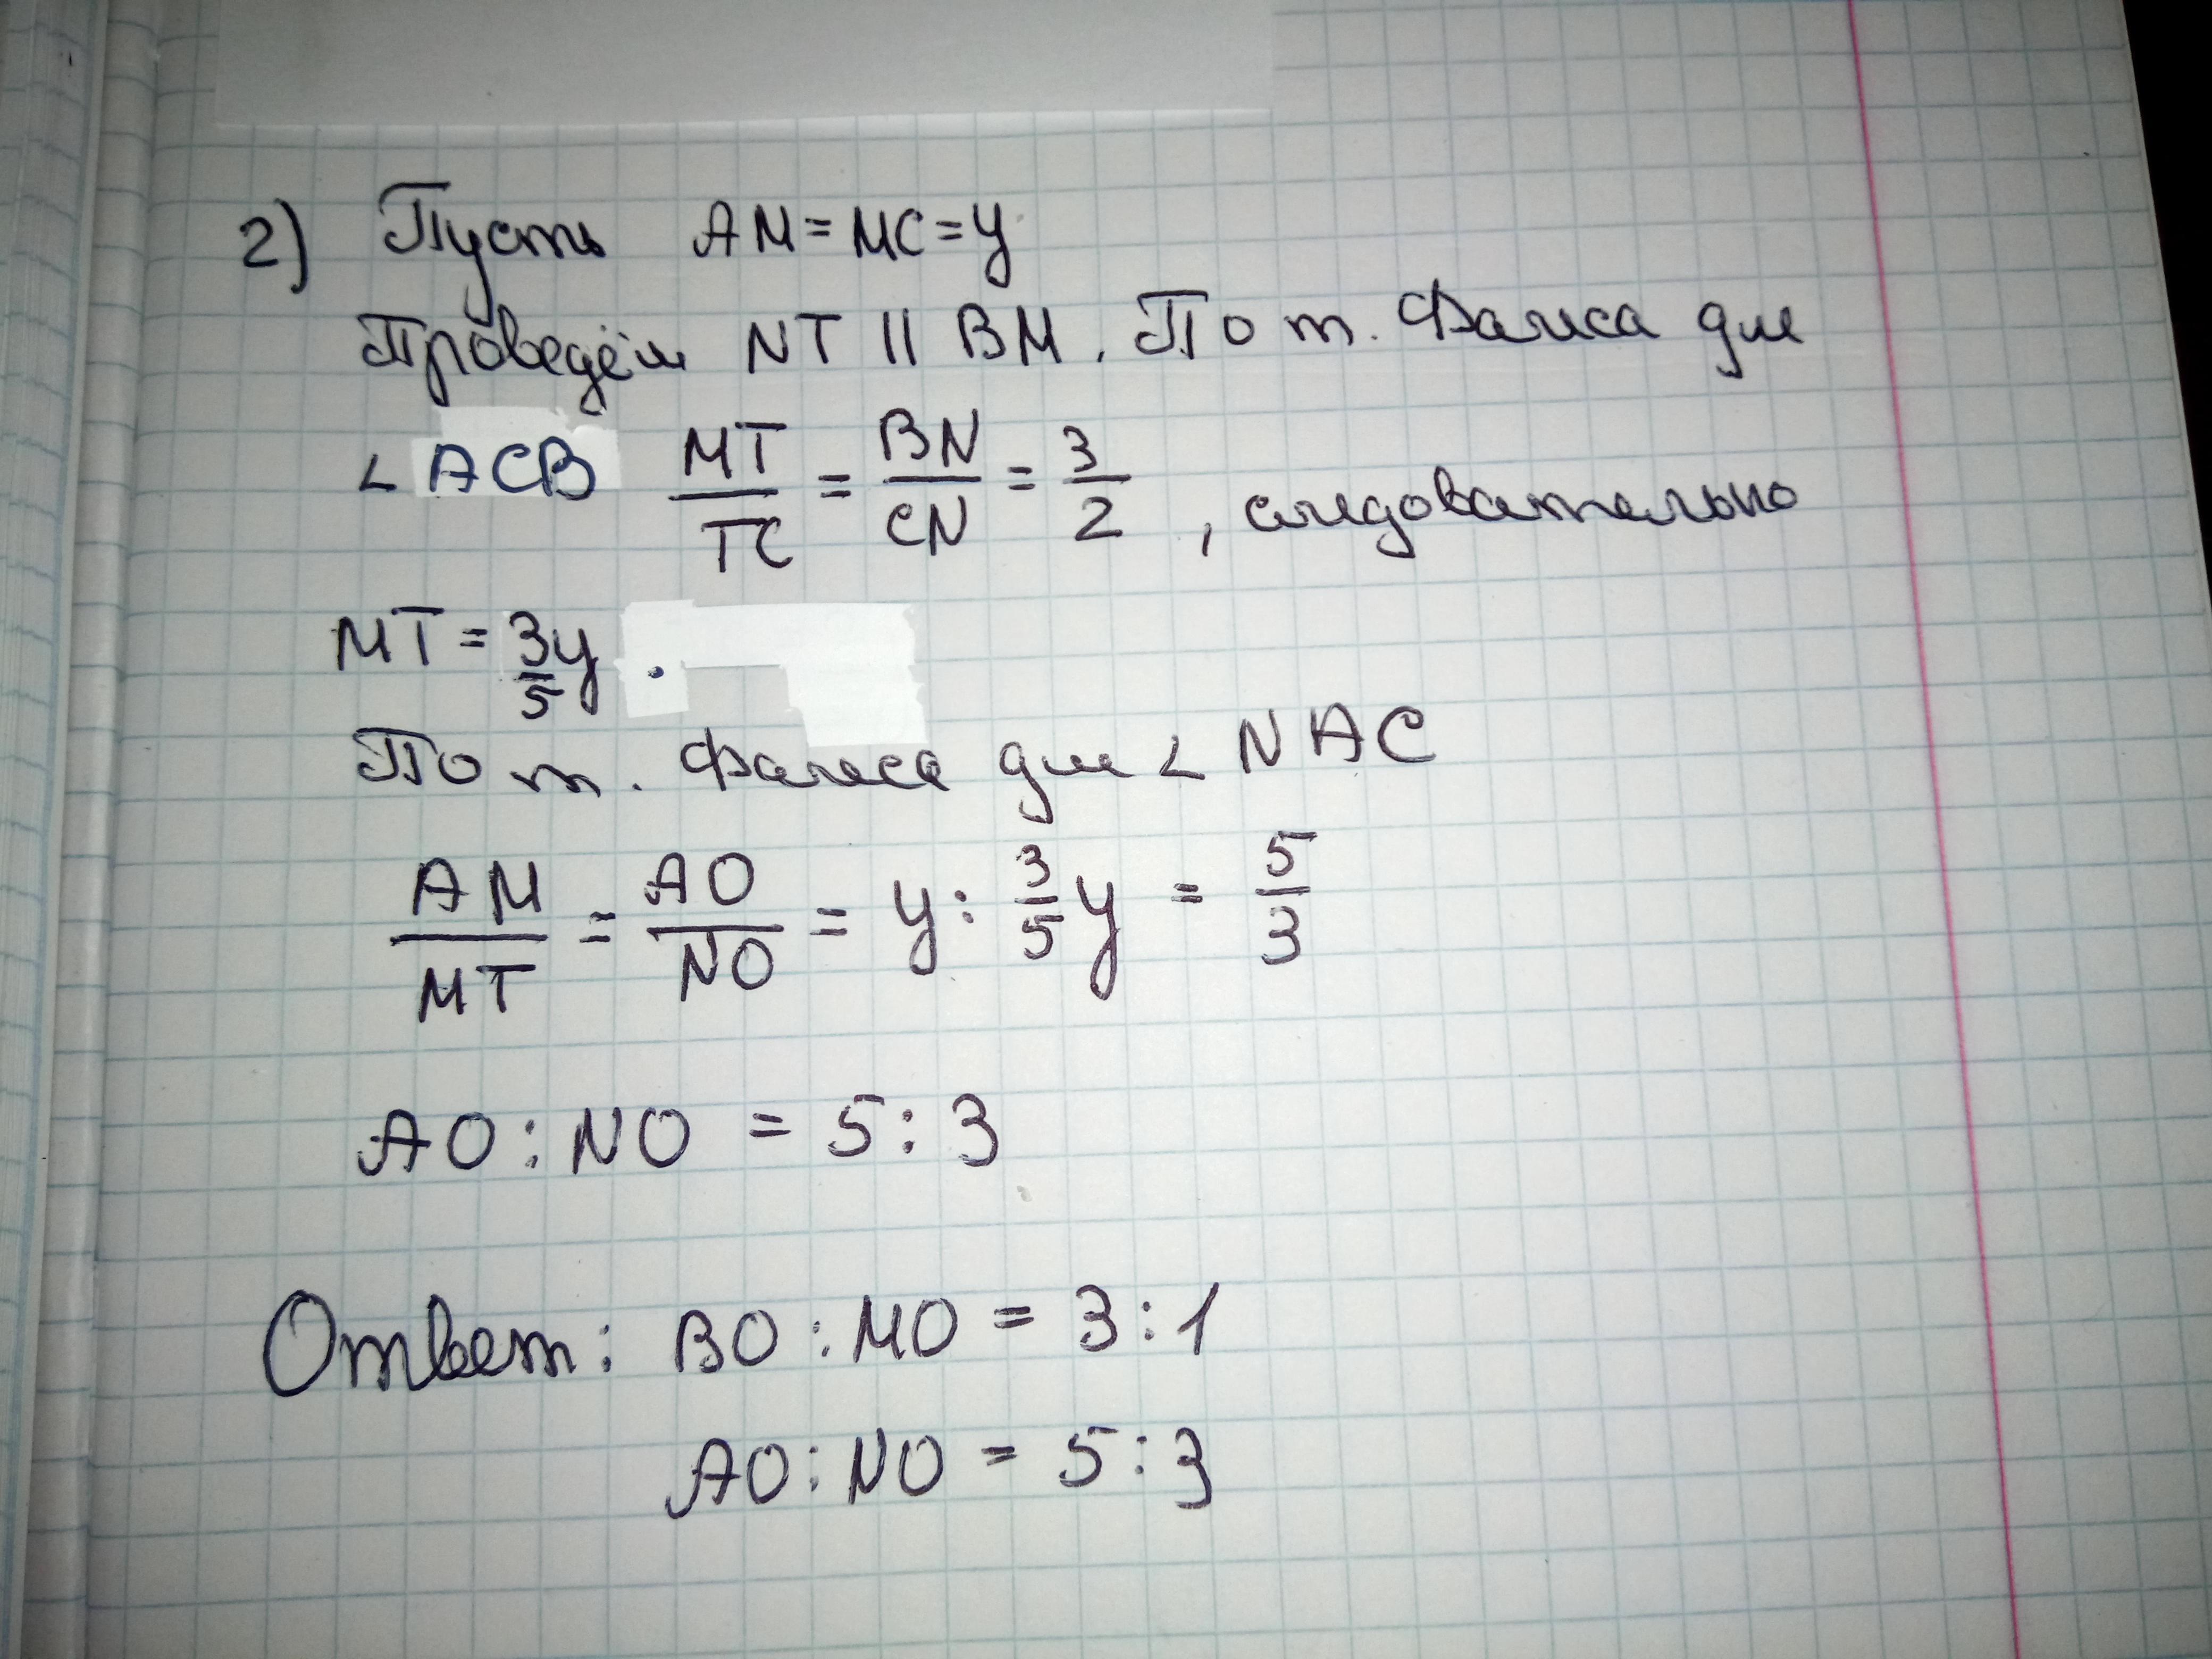 2) Пусть AM = MC = y
Проведём NT || BM. По т. Фалеса для
∠ ACB MT/TC = BN/CN = 3/2, следовательно
MT = 3/5 y .
По т. Фалеса для ∠ NAC
AM/MT = AO/NO = y : 3/5 y = 5/3
AO : NO = 5 : 3
Ответ: BO : MO = 3 : 1
AO : NO = 5 : 3